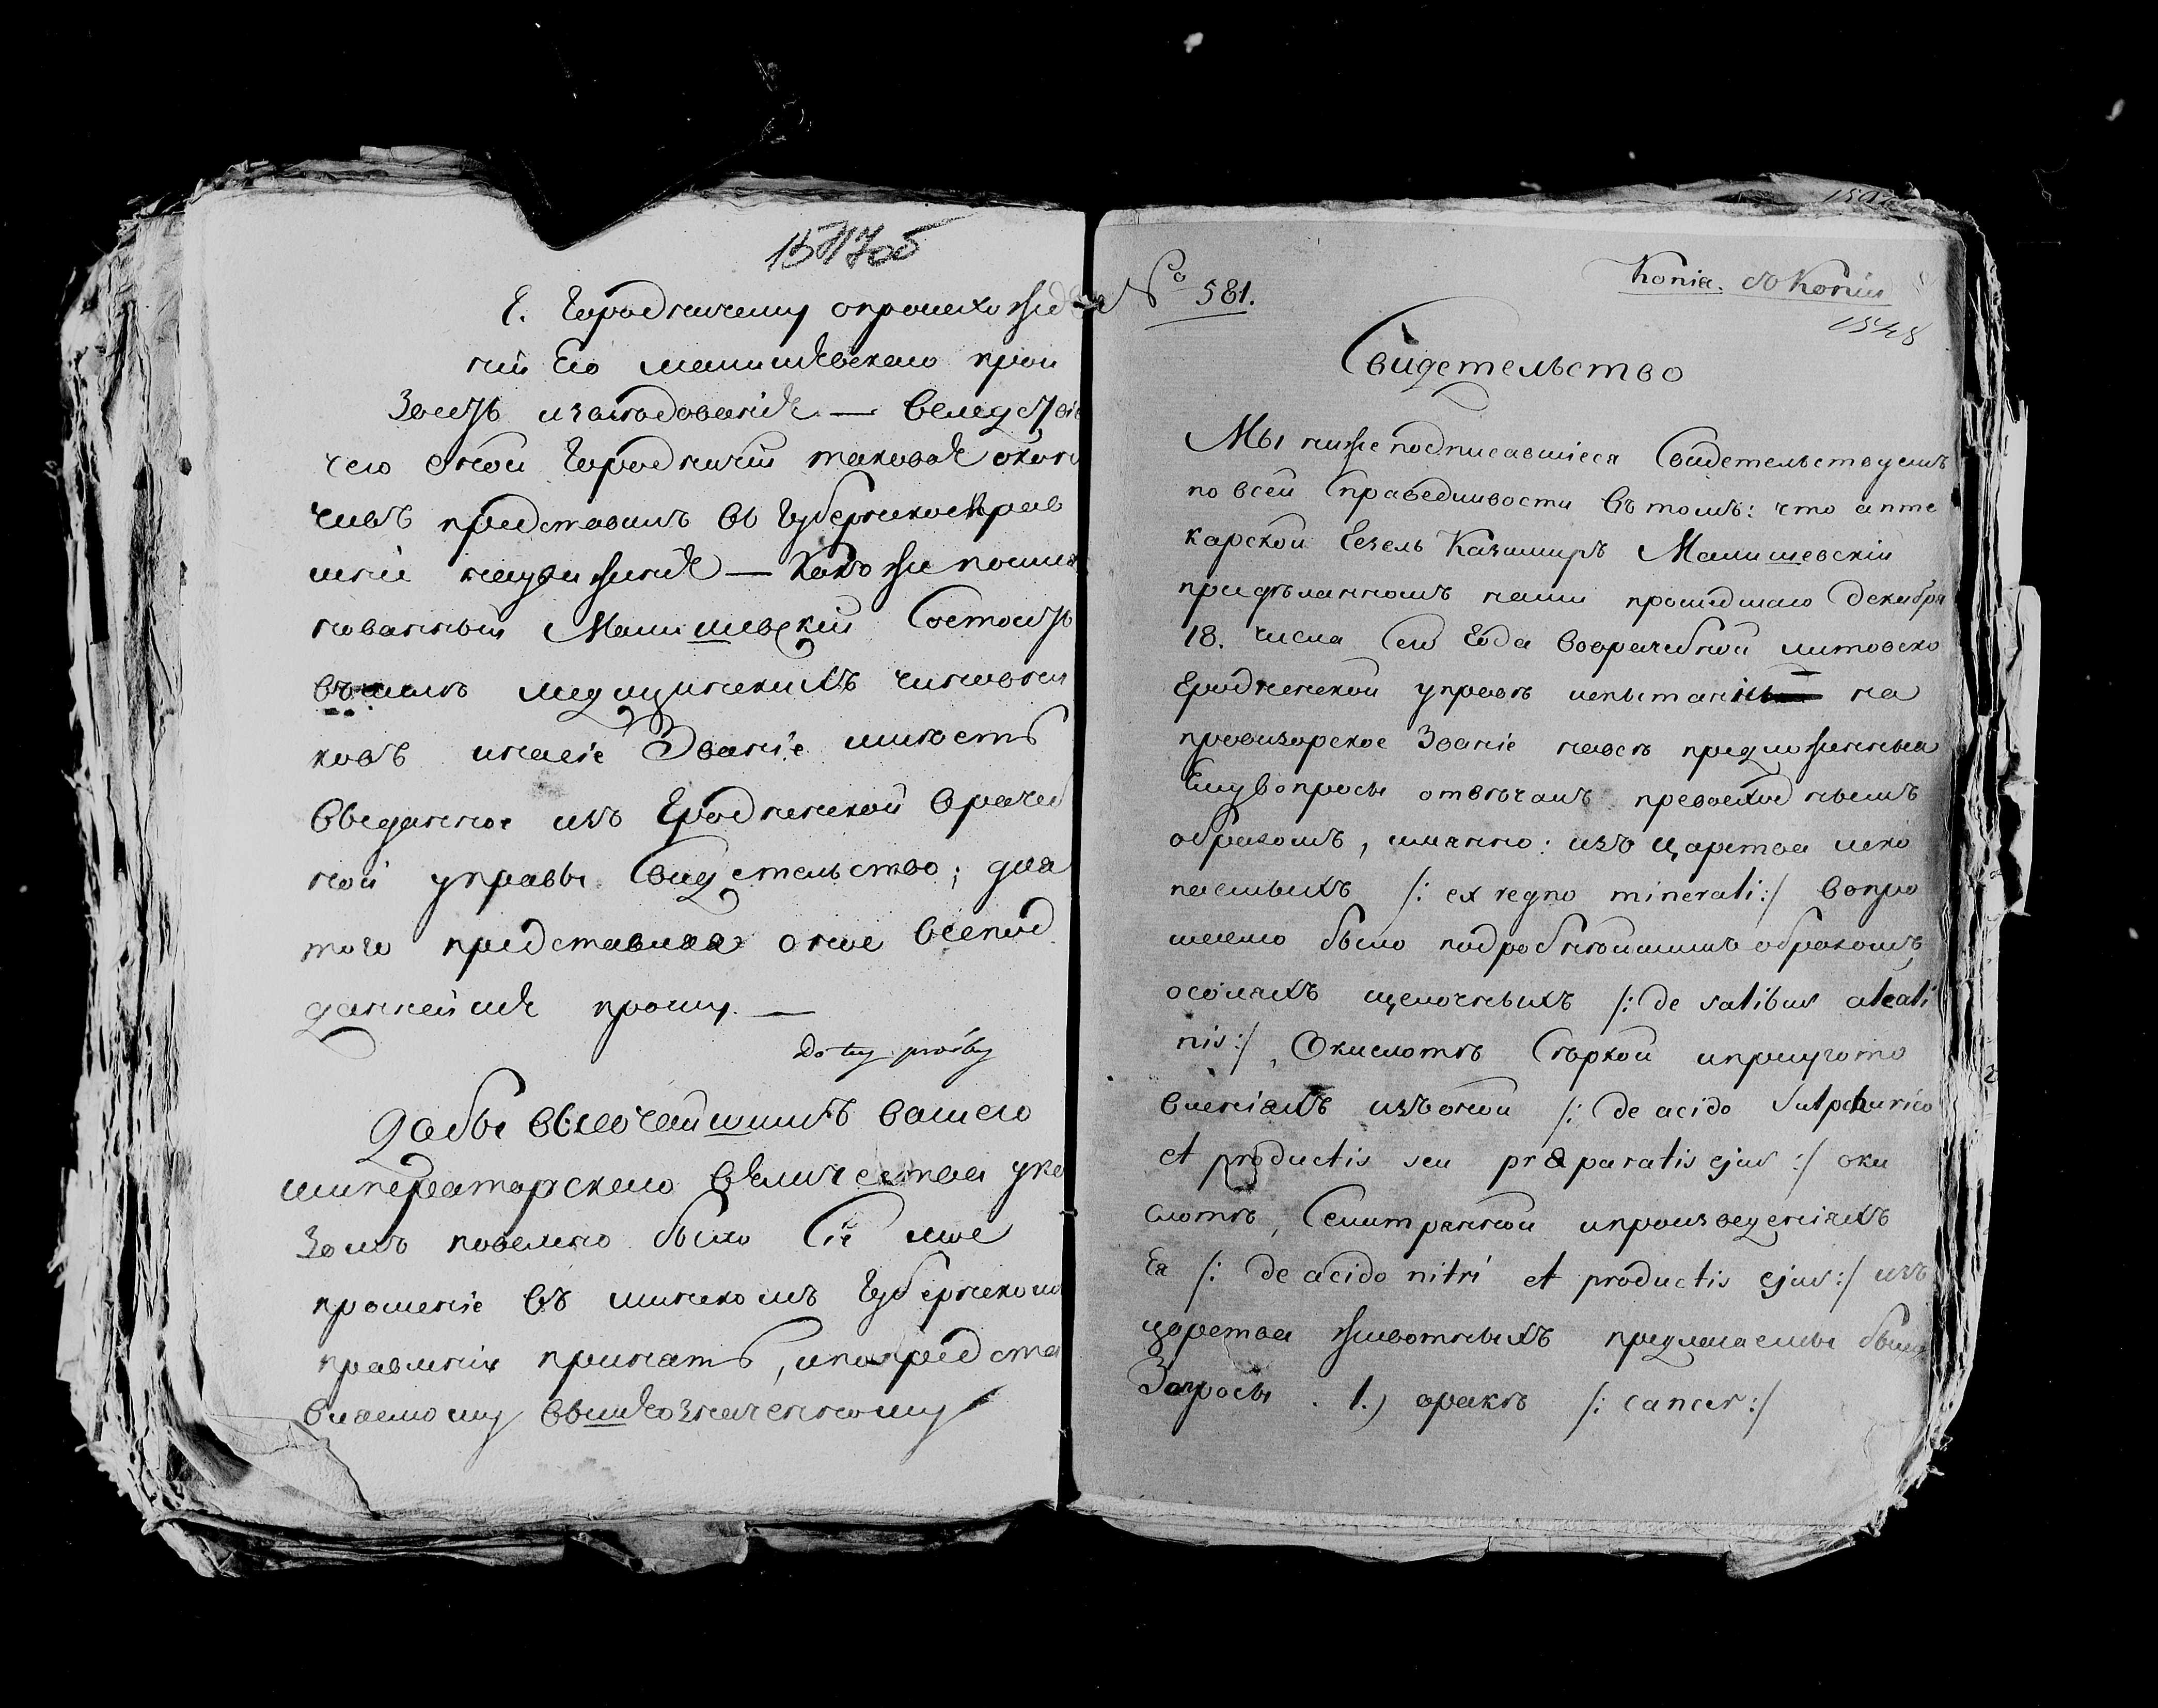 Г. Городничему о происхожде
нии Его Манишевскаго прои
зесть изследование — Вследствие
чего оной Городничий таковое окон
чивъ представилъ въ Губернское Прав
ление — Какъ же помя
нованный Манишевский Состоитъ
медицинскихъ чиновни
ковъ имеетъ Звание
Выданное изъ Гродненской врачеб
ной управы Свидетельство; для
того представляя оное всепод
даннейше прошу. —
Do tey prośby
Дабы высочайшимъ вашего
императорскаго величества ука
зомъ повелено было Сіе мое
прошеніе въ минскомъ Губернскомъ
правленіи принять, и по предста
вляемому вышеозначенному
№ 581.
Копія. съ Копіи
1548
Свидетельство
Мы нижеподписавшіеся Свидетельствуемъ
по всей Справедливости въ томъ: что апте
карской Гезель Казимиръ Манишевскій
при деланномъ нами прошедшаго Декабря
18. числа Сего Года во врачебной литовско
Гродненской управе испытаніи на
провизорское Званіе на все предложенныя
Ему вопросы отвечалъ превосходнымъ
образомъ, имянно: изъ царства иско
паемыхъ /: ex regno minerali:/ вопро
шаемо было подробнейшимъ образомъ,
о соляхъ щелочныхъ /: de salibus alcali
nis:/, О кислоте Серной и приугото
вленіяхъ изъ оной /: de acido Sulphurico
et productis seu præparatis ejus:/ о ки
слоте, Селитрянной и произведеніяхъ
Ея /: de acido nitri et productis ejus:/ изъ
царства животныхъ предлагаемы были
Запросы . 1.) о раке /: cancer:/